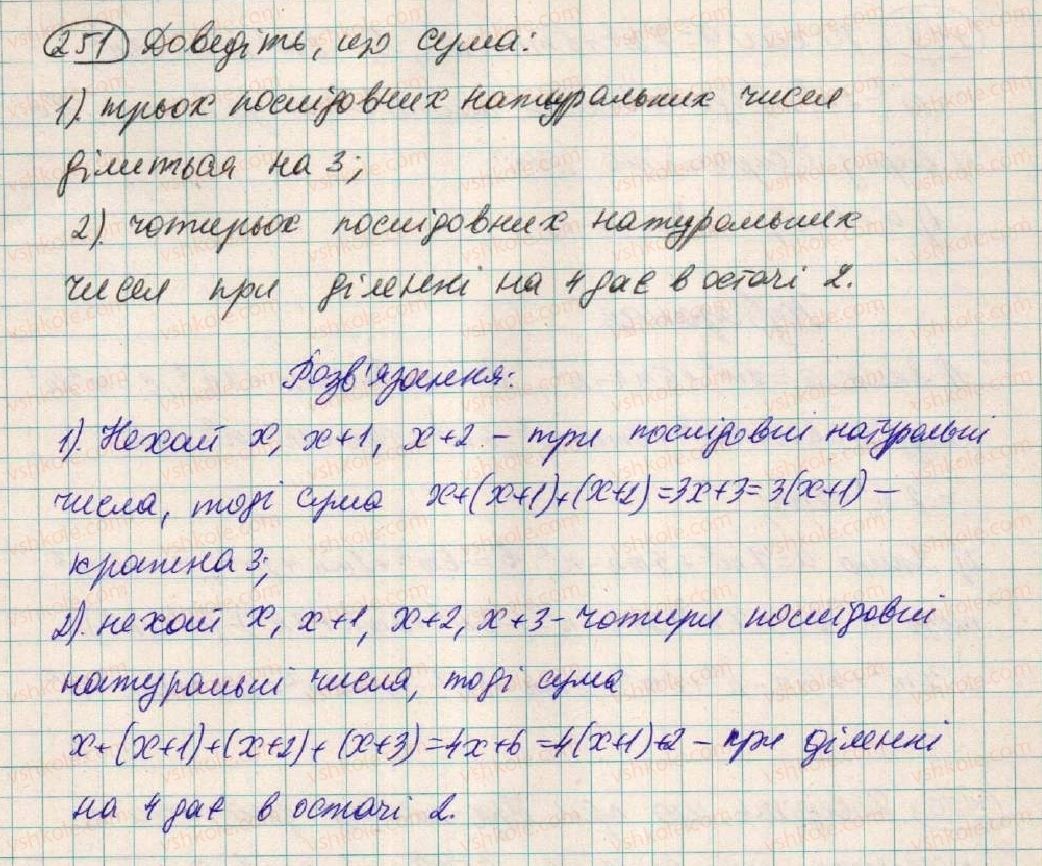 251 Доведіть, що сума:
1). трьох послідовних натуральних чисел
ділиться на 3;
2). чотирьох послідовних натуральних
чисел при діленні на 4 дає в остачі 2.
Розв'язання:
1). Нехай x, x+1, x+2 – три послідовні натуральні
числа, тоді сума x+(x+1)+(x+2)=3x+3=3(x+1) –
кратна 3;
2). нехай x, x+1, x+2, x+3 – чотири послідовні
натуральні числа, тоді сума
x+(x+1)+(x+2)+(x+3)=4x+6=4(x+1)+2 – при діленні
на 4 дає в остачі 2.